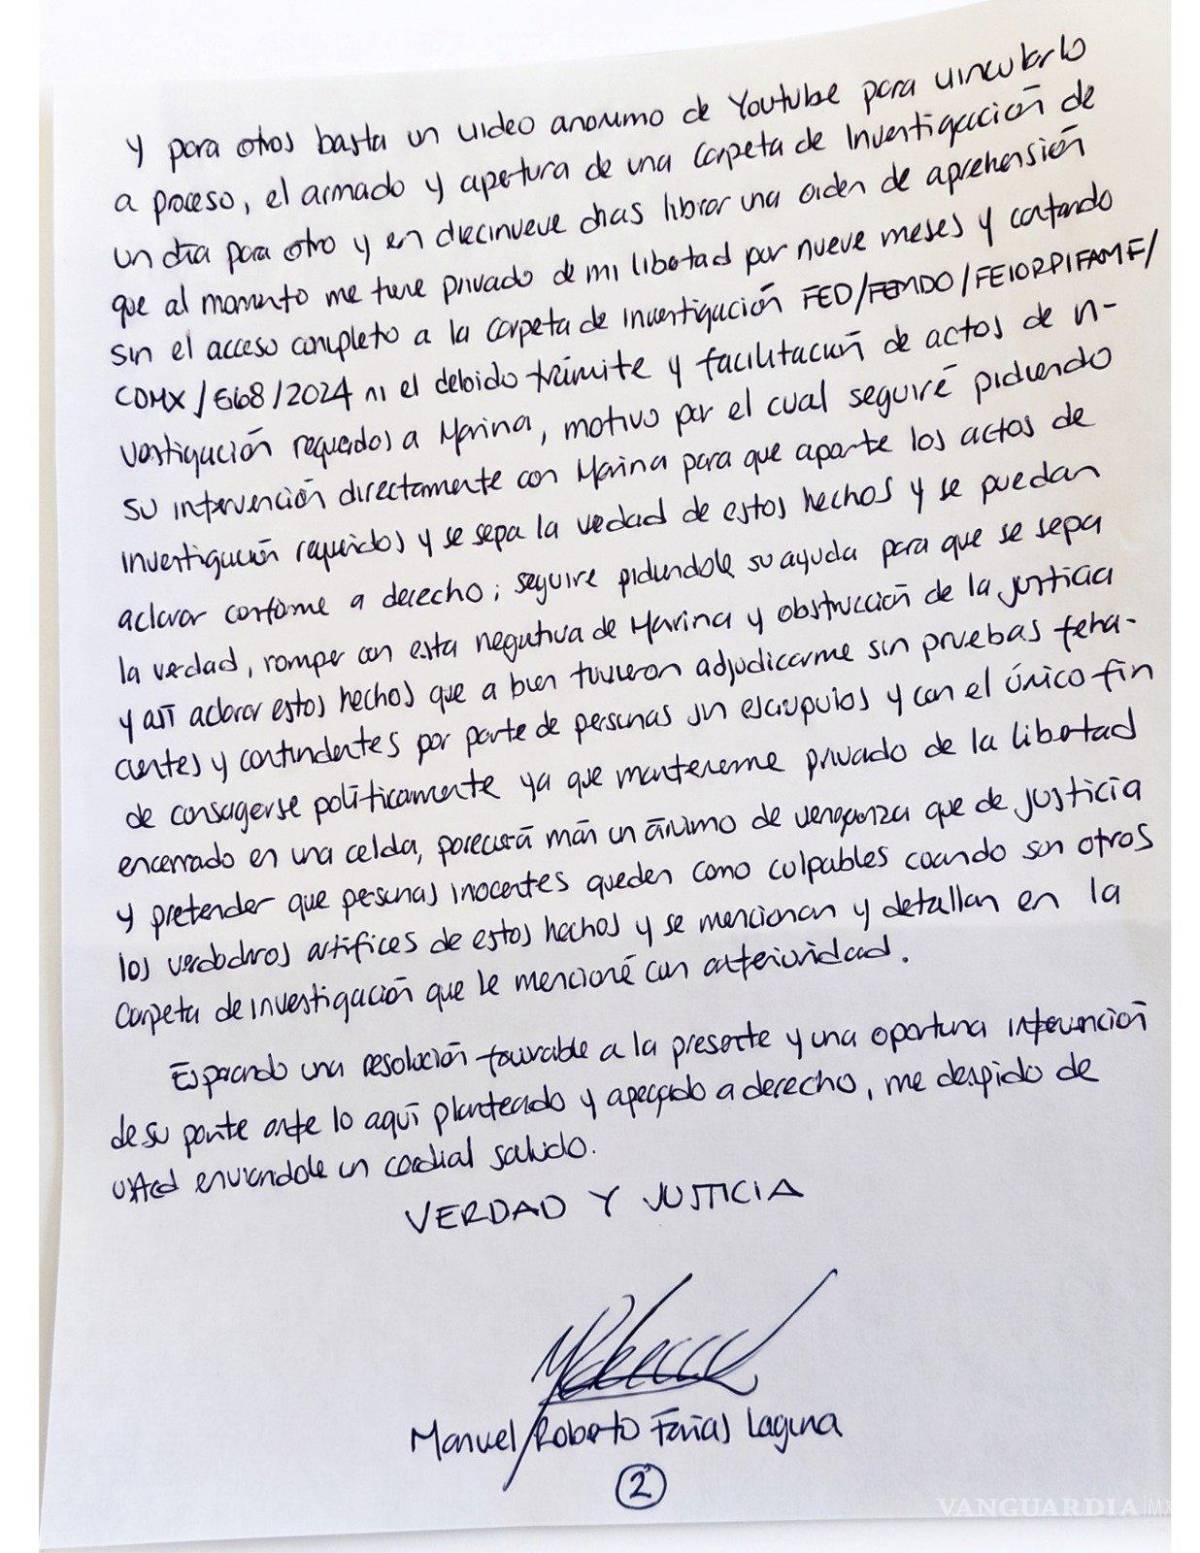 y para otros basta un video anonimo de Youtube para vincularlo
a proceso, el armado y apertura de una carpeta de Investigación de
un día para otro y en diecinueve dias librar una orden de aprehensión
que al momento me tiene privado de mi libertad por nueve meses y contando
sin el acceso completo a la carpeta de investigación FED/FEMDO/FEIORPIFAMF/
CDMX/668/2024 ni el debido trámite y facilitación de actos de in-
vestigación requeridos a Marina, motivo por el cual seguiré pidiendo
su intervención directamente con Marina para que aporte los actos de
investigación requeridos y se sepa la verdad de estos hechos y se puedan
aclarar conforme a derecho; seguire pidiendole su ayuda para que se sepa
la verdad, romper con esta negativa de Marina y obstrucción de la justicia
y así aclarar estos hechos que a bien tuvieron adjudicarme sin pruebas feha-
cientes y contundentes por parte de personas sin escrupulos y con el único fin
de consagerse políticamente ya que mantenerme privado de la libertad
encerrado en una celda, parecerá más un ánimo de venganza que de justicia
y pretender que personas inocentes queden como culpables cuando son otros
los verdaderos artifices de estos hechos y se mencionan y detallan en la
Carpeta de investigación que le mencioné con anterioridad.
Esperando una resolución favorable a la presente y una oportuna intervención
de su parte ante lo aquí planteado y apegado a derecho, me despido de
usted enviandole un cordial saludo.
VERDAD Y JUSTICIA
Manuel Roberto Farías Laguna
2
VANGUARDIA MX